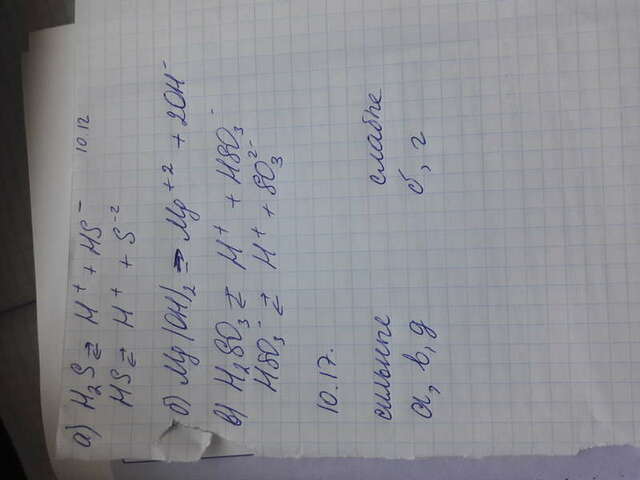 а) H₂S ⇄ H⁺ + HS⁻ 10.12
HS ⇄ H⁺ + S⁻²
б) Mg(OH)₂ ⇄ Mg⁺² + 2OH⁻
в) H₂SO₃ ⇄ H⁺ + HSO₃⁻
HSO₃⁻ ⇄ H⁺ + SO₃²⁻
10.17.
сильные слабые
а, в, д б, г